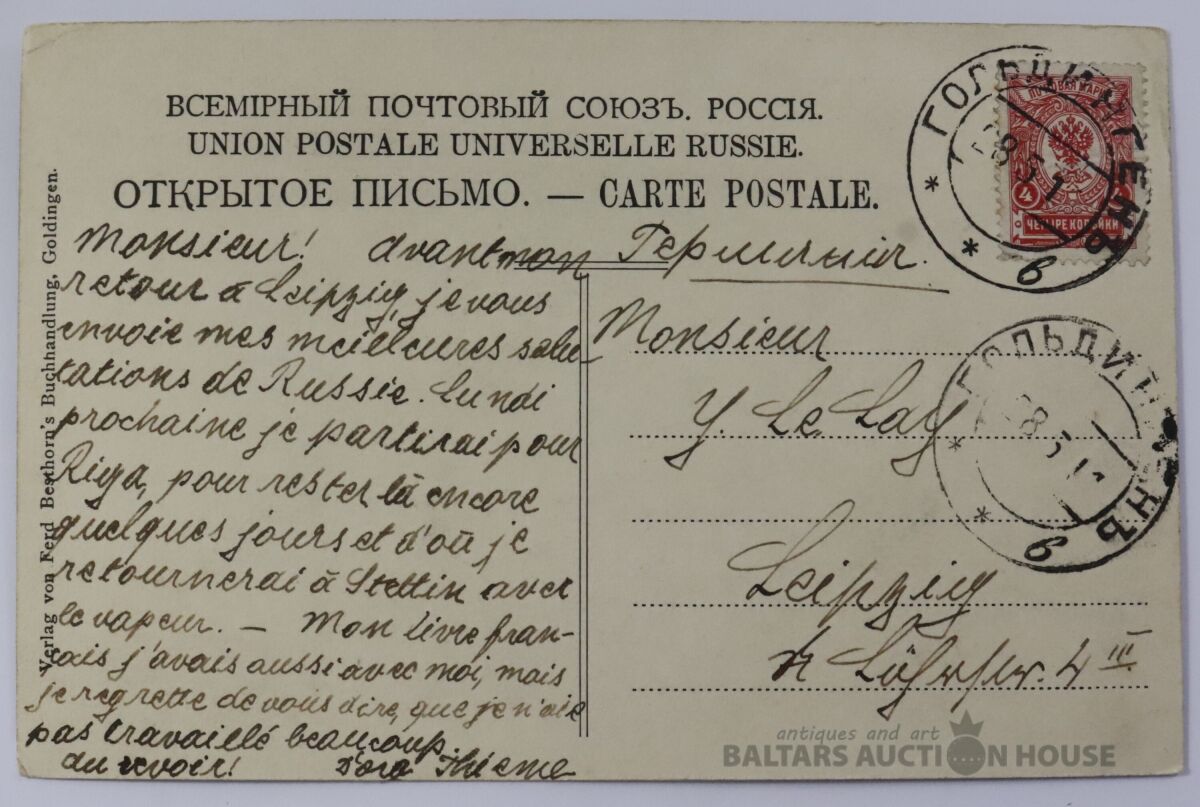 ВСЕМІРНЫЙ ПОЧТОВЫЙ СОЮЗЪ. РОССІЯ.
UNION POSTALE UNIVERSELLE RUSSIE.
ОТКРЫТОЕ ПИСЬМО. — CARTE POSTALE.
Verlag von Ferd Besthorn's Buchhandlung, Goldingen.
Monsieur! Avant mon
retour à Leipzig, je vous
envoie mes meilleures salu-
tations de Russie. Lundi
prochaine je partirai pour
Riga, pour rester là encore
quelques jours et d'où je
retournerai à Stettin avec
le vapeur. — Mon livre fran-
çais j'avais aussi avec moi, mais
je regrette de vous dire, que je n'aie
pas travaillé beaucoup.
Au revoir! Dora Thieme
Германія.
Monsieur
Y. Le Lay
Leipzig
Löhrstr. 4 III
ПОЧТОВАЯ МАРКА
4
ЧЕТЫРЕ КОПѢЙКИ
* ГОЛЬДИНГЕНЪ *
в
* ГОЛЬДИНГЕНЪ *
в
antiques and art
BALTARS AUCTION HOUSE